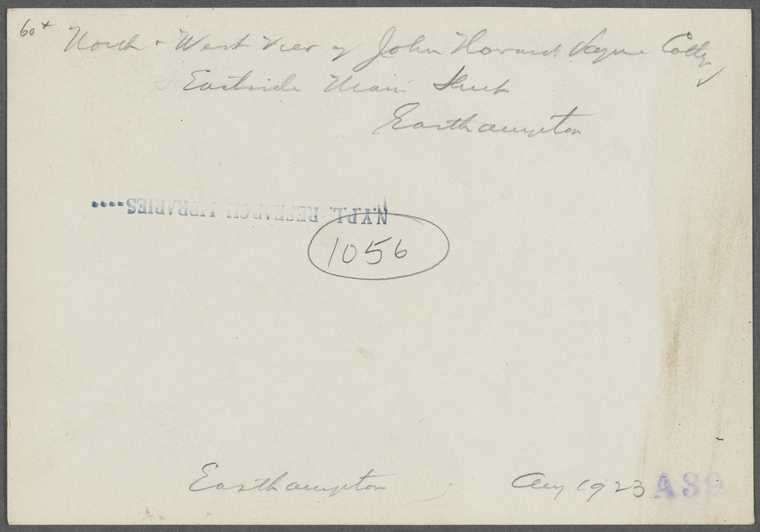 60+
North + West View of John Howard Payne Cottg
Eastside Main Street
Easthampton
N.Y.P.L. RESEARCH LIBRARIES
1056
Easthampton Aug 1923 A39